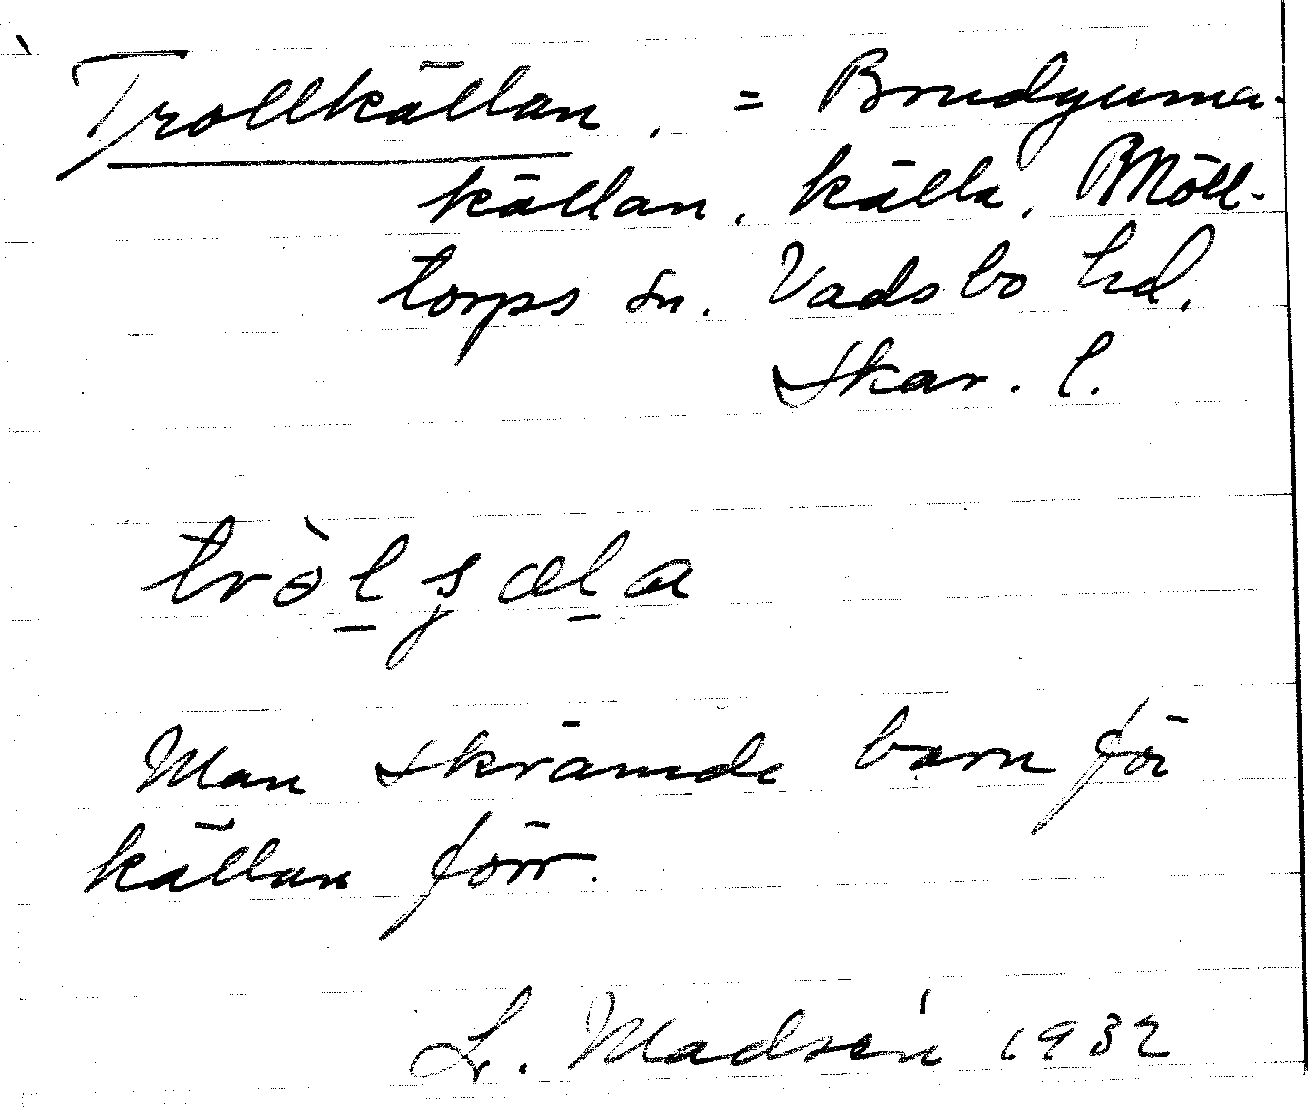 Trollkällan, = Brudguma-
källan, källa, Möll-
torps sn. Vadsbo hd.
Skar. l.
Man skrämde barn för
källan förr.
L. Madsén 1932